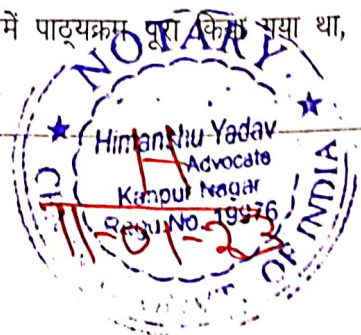 में पाठ्यक्रम पूरा किया गया था,
NOTARY
Himanshu Yadav
Advocate
Kanpur Nagar
Regd. No. 19976
11-01-23
OF INDIA